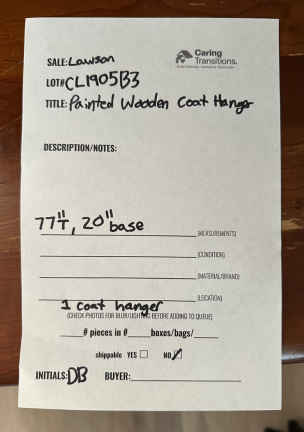 Caring
Transitions.
SALE: Lawson
LOT# CL1905B3
TITLE: Painted Wooden Coat Hanger
DESCRIPTION/NOTES:
77"T, 20" base
(MEASUREMENTS)
(CONDITION)
(MATERIAL/BRAND)
(LOCATION)
1 coat hanger
(CHECK PHOTOS FOR BLUR/LIGHTING BEFORE ADDING TO QUEUE)
# pieces in # boxes/bags/
shippable YES NO
INITIALS: DB BUYER: